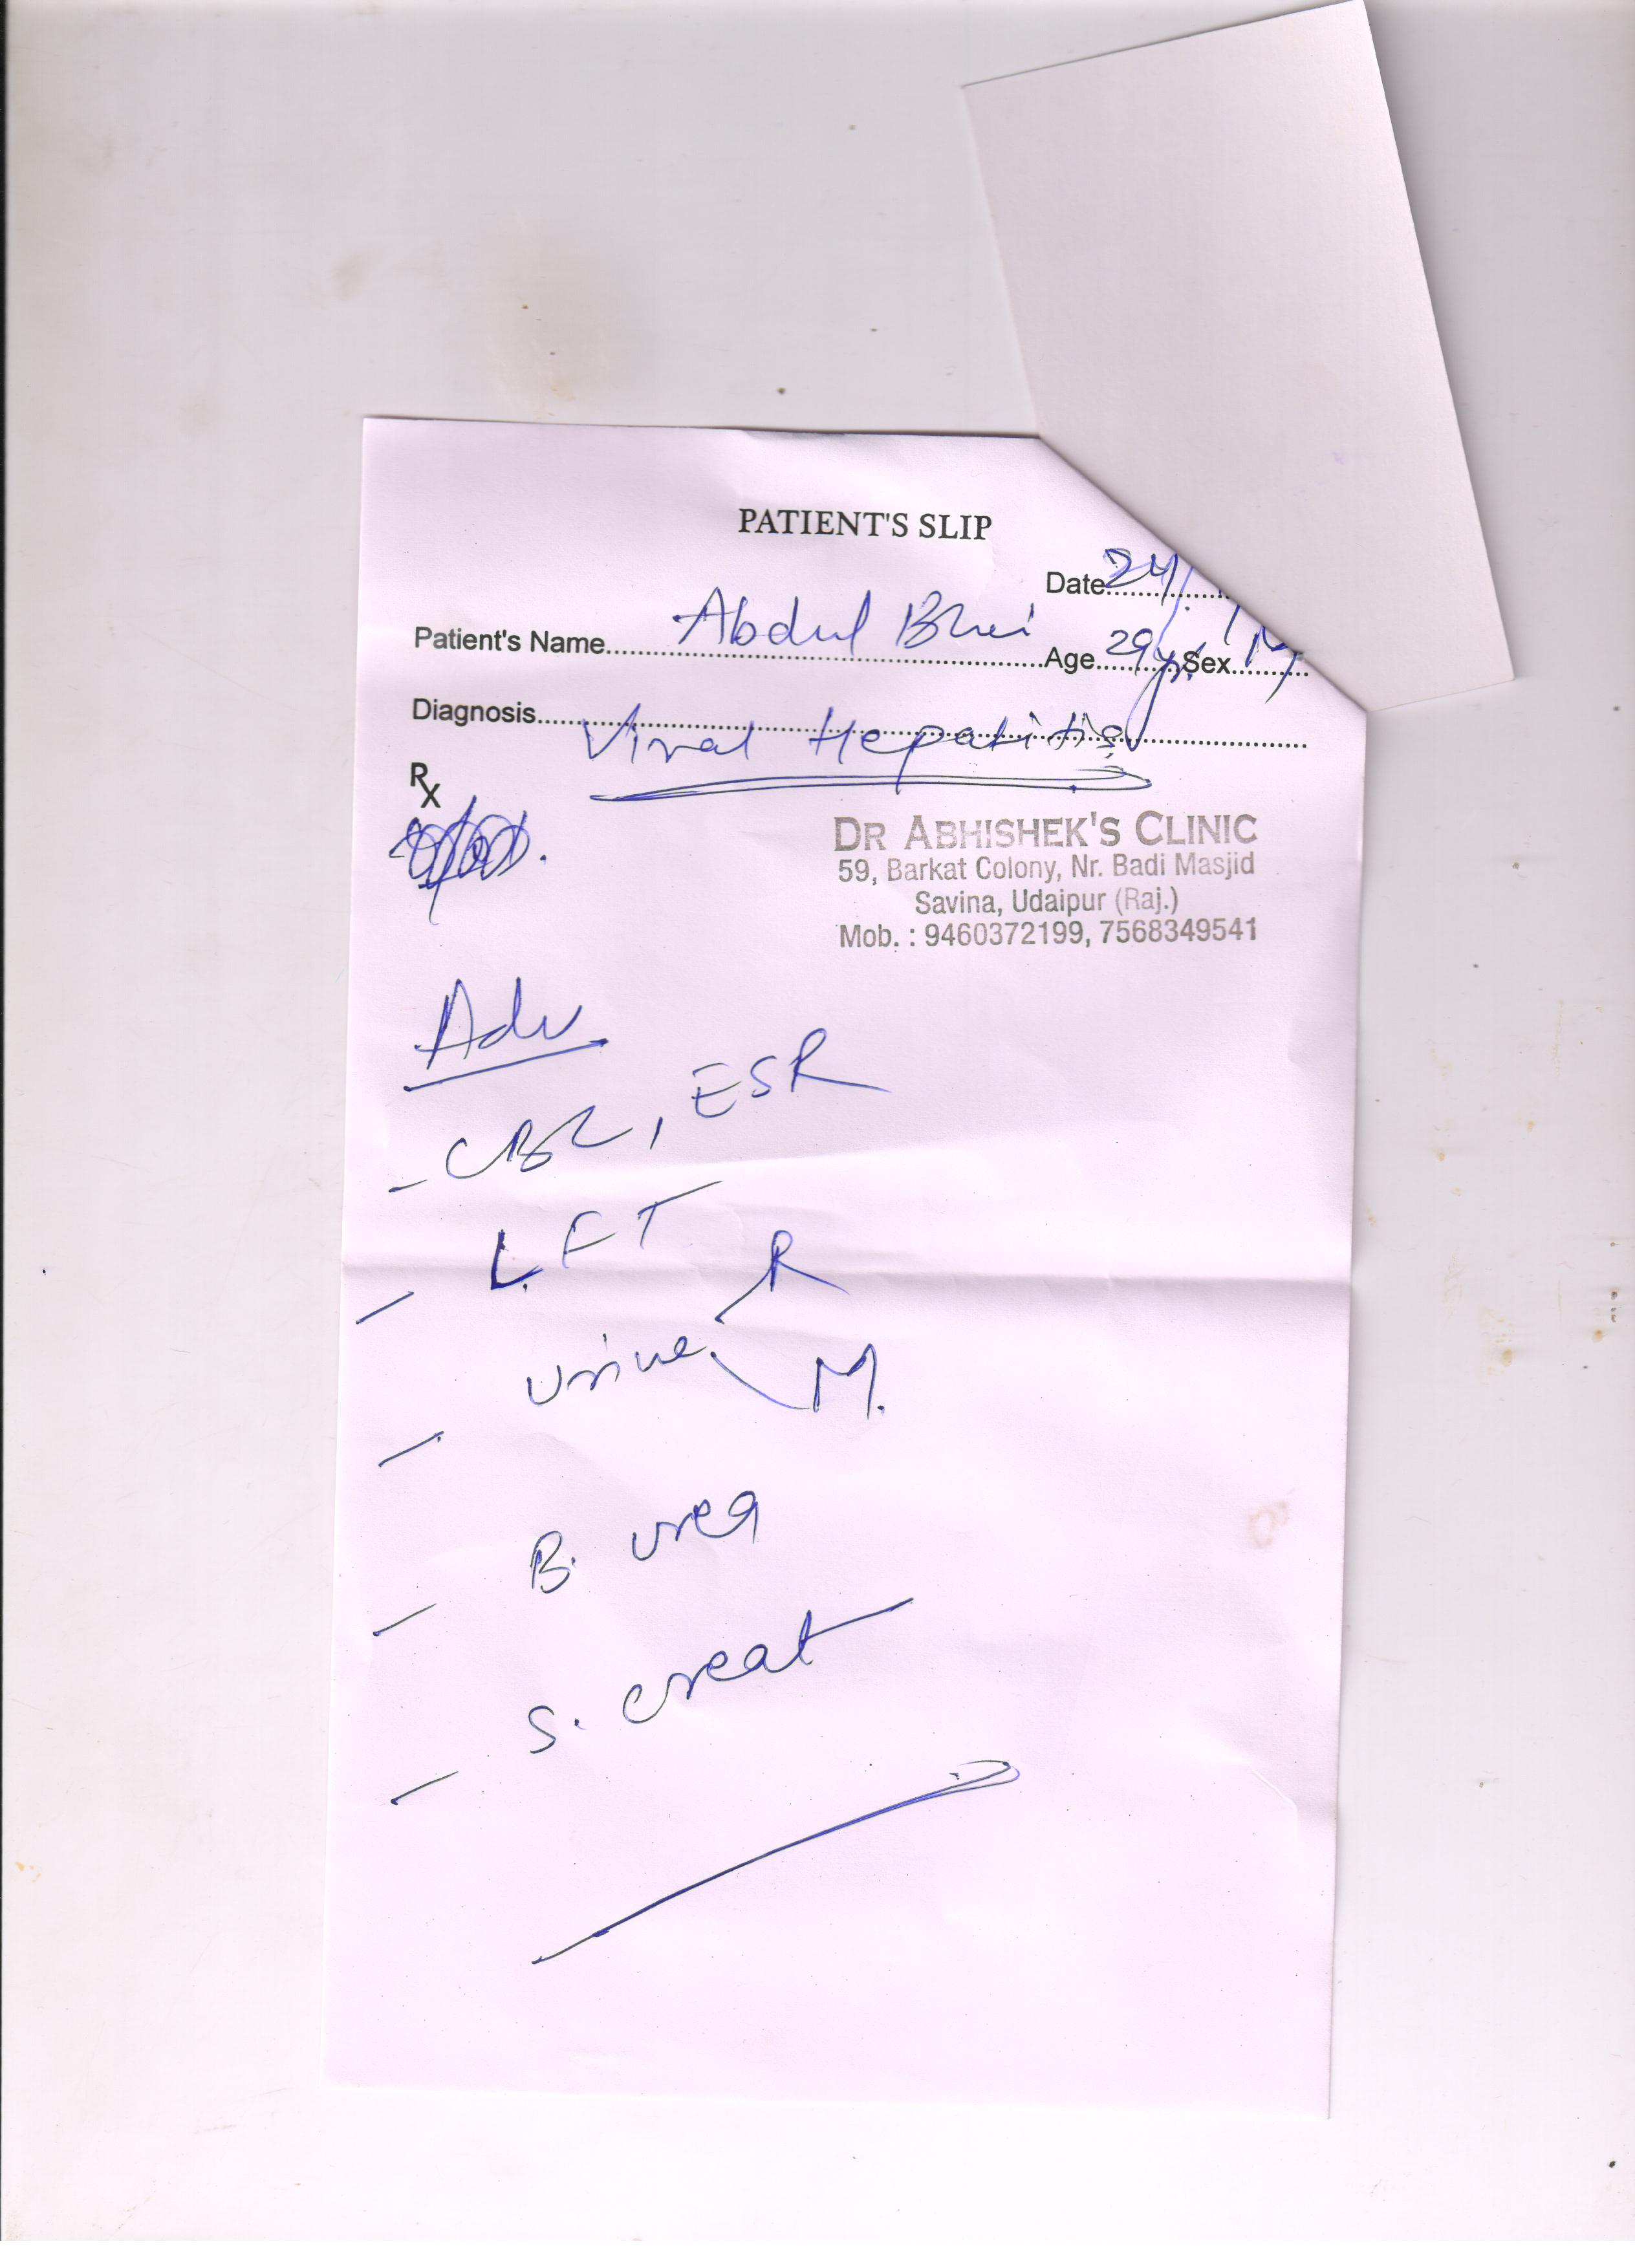 PATIENT'S SLIP
Date 24/
Patient's Name Abdul Bhai Age 29 yr Sex M
Diagnosis Viral Hepatitis
Rx
DR ABHISHEK'S CLINIC
59, Barkat Colony, Nr. Badi Masjid
Savina, Udaipur (Raj.)
Mob. : 9460372199, 7568349541
Adv
- CBC, ESR
- LFT
- Urine R
M.
- B. urea
- S. creat